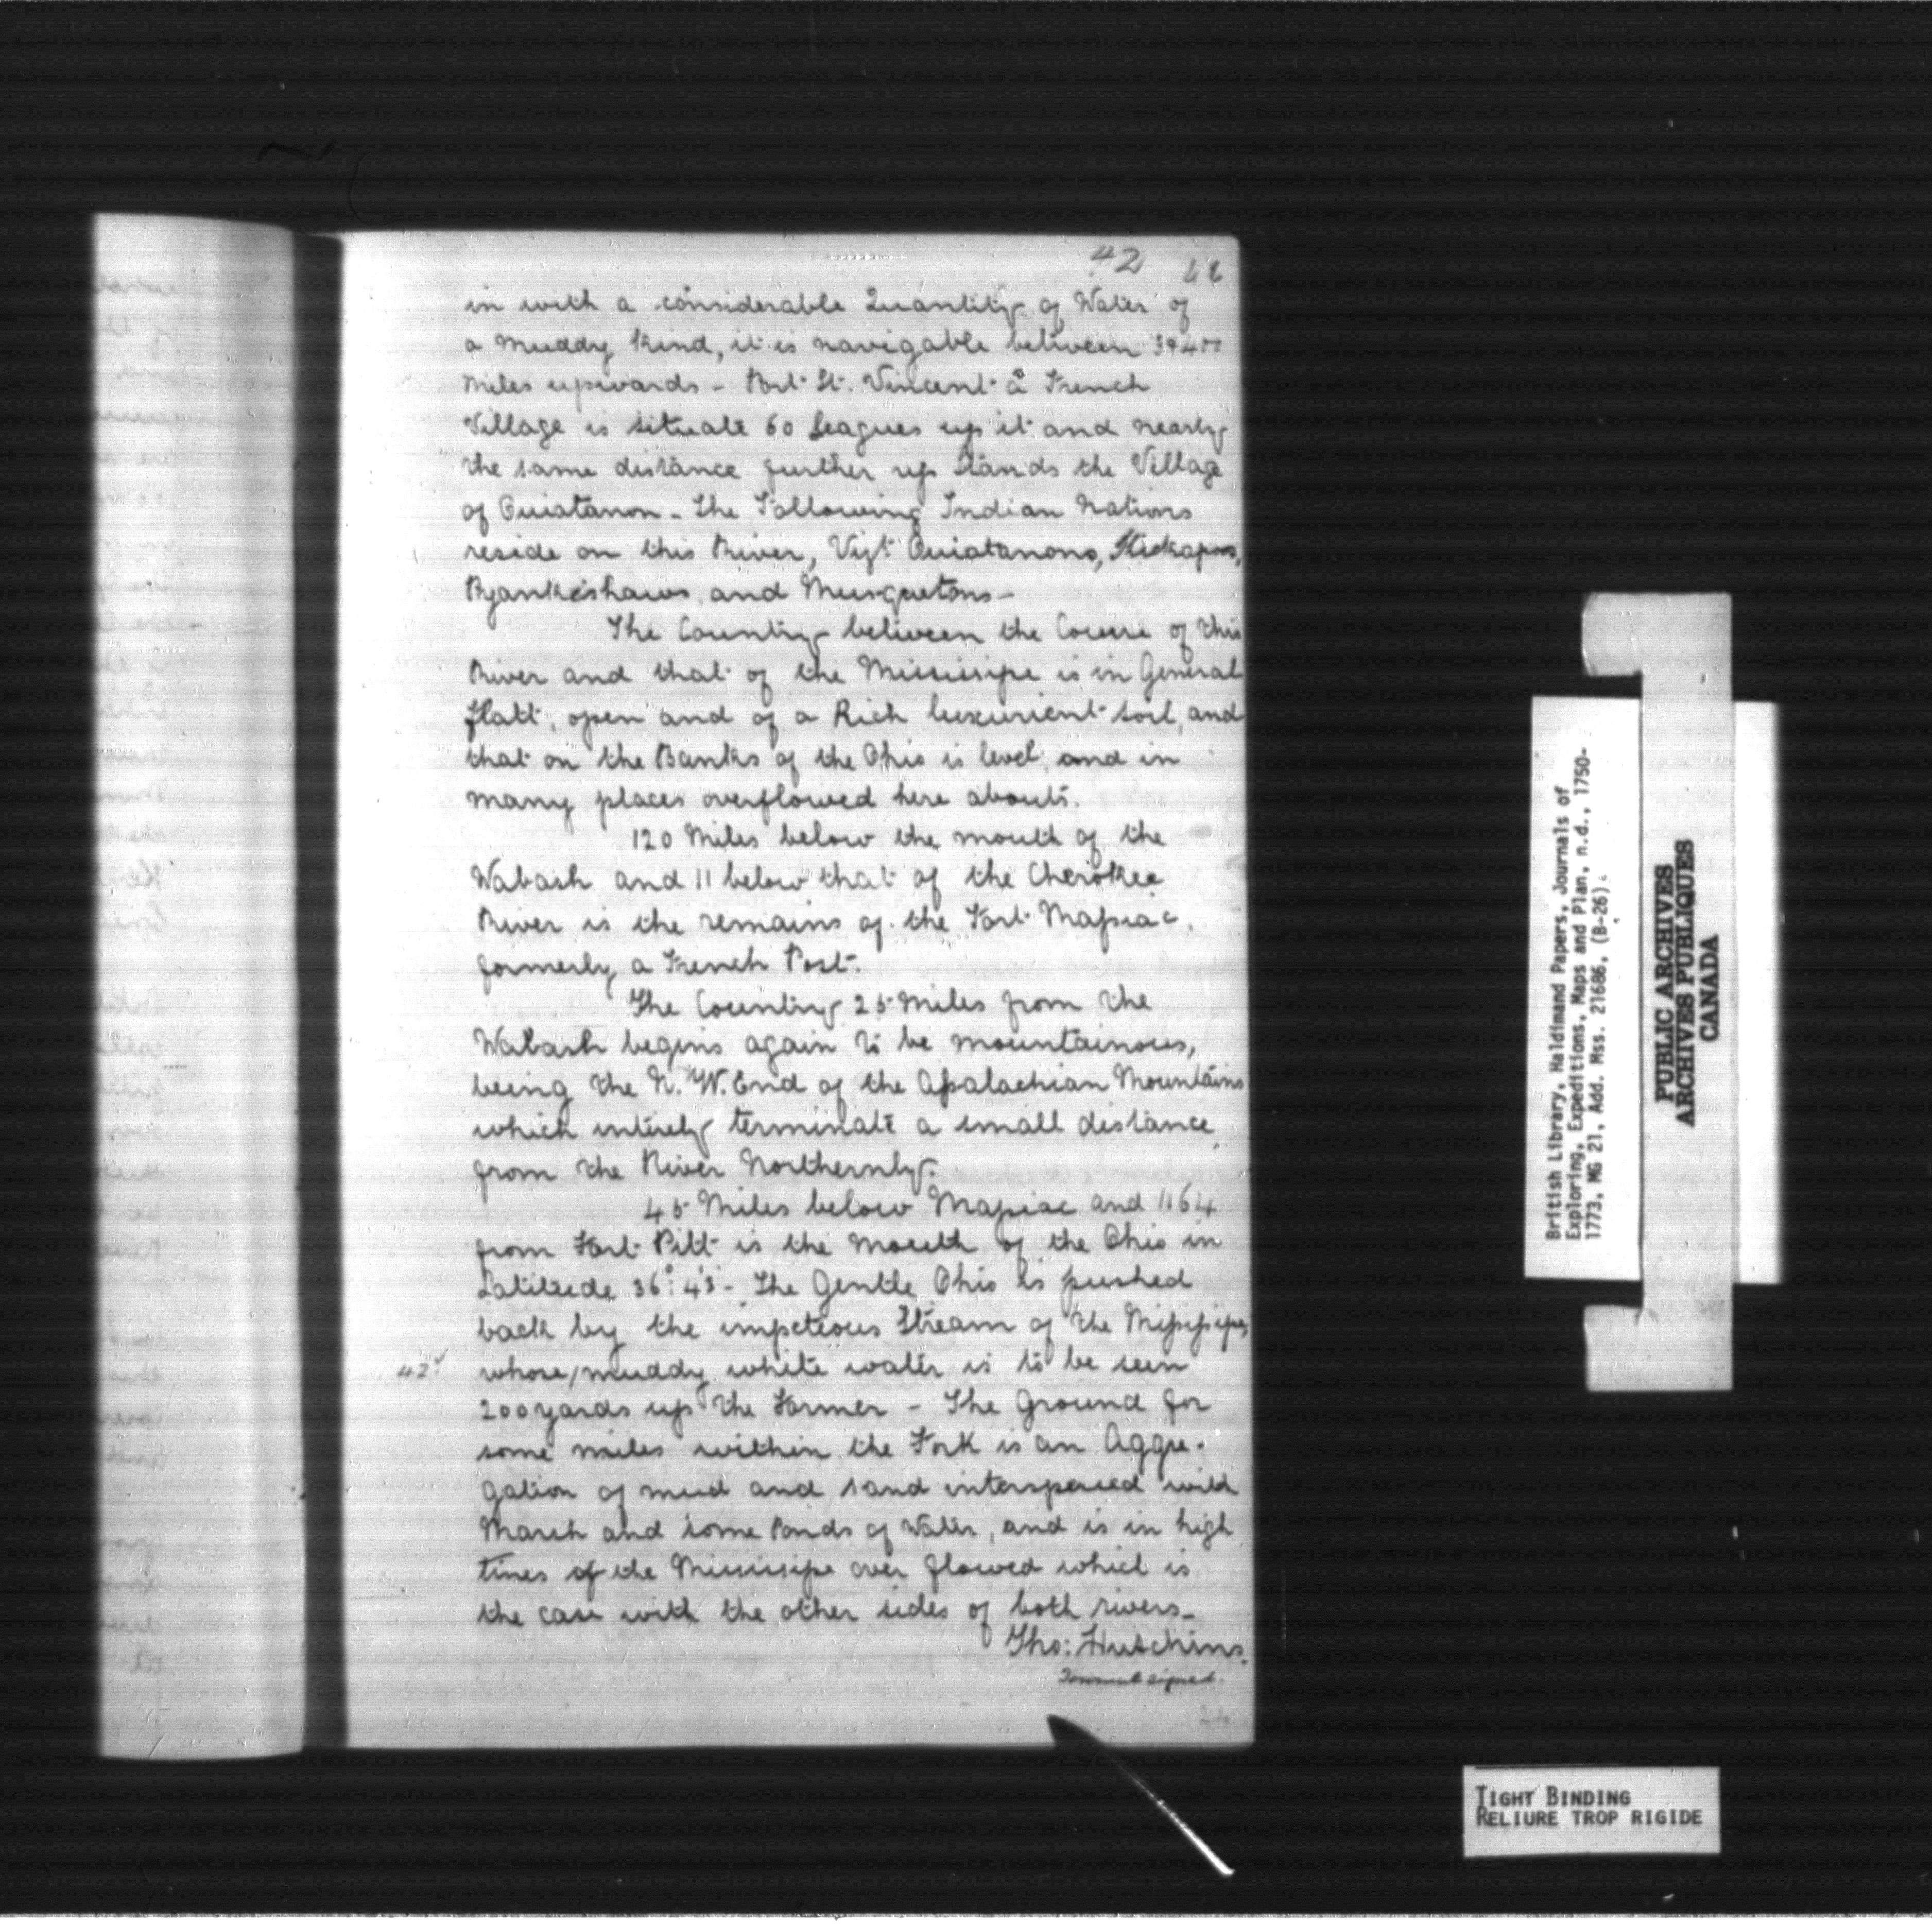 42
in with a considerable Quantity of Water of
a Muddy Kind, it is navigable between 3 & 400
Miles upwards - Port St. Vincent a French
Village is situate 60 Leagues up it and nearly
the same distance further up stands the Village
of Ouiatanon - The Following Indian Nations
reside on this River, Vizt Ouiatanons, Kickapoos,
Pyankishaws, and Musquetons -
The Country between the Course of this
River and that of the Missisipe is in General
flatt, open and of a Rich luxurient soil, and
that on the Banks of the Ohio is level, and in
many places overflowed here abouts.
120 Miles below the mouth of the
Wabash and 11 below that of the Cherokee
River is the remains of the Fort Massiac,
formerly a French Post.
The Country 25 Miles from the
Wabash begins again to be mountainous,
being the N. W. End of the Apalachian Mountains
which intirely terminate a small distance
from the River Northernly.
45 Miles below Massiac and 1164
from Fort Pitt is the Mouth of the Ohio in
Latitude 36° : 43' - The Gentle Ohio is pushed
back by the impetious Stream of the Missisipe,
42.
whose / muddy white water is to be seen
200 yards up the Former - The Ground for
some miles within the Fork is an Aggre-
gation of mud and sand interspersed with
Marsh and some Ponds of Water, and is in high
times of the Missisipe over flowed which is
the case with the other sides of both rivers -
Tho: Hutchins.
signed.
24
British Library, Haldimand Papers, Journals of
Exploring, Expeditions, Maps and Plan, n.d., 1750-
1773, MG 21, Add. Mss. 21686, (B-26).
PUBLIC ARCHIVES
ARCHIVES PUBLIQUES
CANADA
TIGHT BINDING
RELIURE TROP RIGIDE